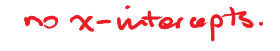 no x-intercepts.